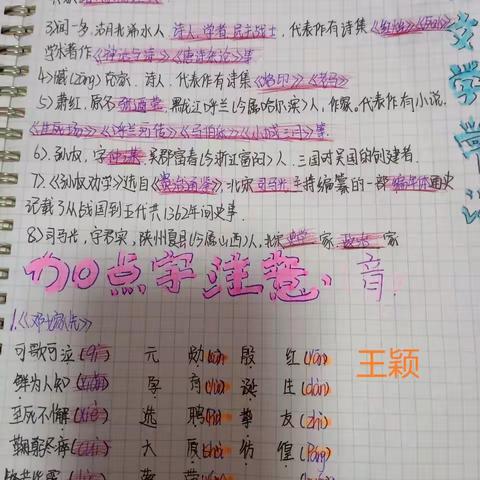 3)闻一多,湖北浠水人,诗人、学者、民主战士,代表作有诗集《红烛》《死水》,
学术著作《神话与诗》《唐诗杂论》等.
4)臧(zāng)克家.诗人.代表作有诗集《烙印》《老马》
5)萧红,原名张迺莹,黑龙江呼兰(今属哈尔滨)人,作家。代表作有小说.
《生死场》《呼兰河传》《马伯乐》《小城三月》等.
6).孙权,字仲谋,吴郡富春(今浙江富阳)人.三国时吴国的创建者.
7).《孙权劝学》选自《资治通鉴》,北宋司马光主持编纂的一部编年体通史
记载了从战国到五代共1362年间史事.
8)司马光,字君实,陕州夏县(今属山西)人,北宋史学家,政治家
文学常识
加点字注意、音.
1.《邓稼先》
可歌可泣(qì) 元勋(xūn) 殷红(yān)
鲜为人知(xiǎn) 孕育(yùn) 诞生(dàn)
至死不懈(xiè) 选聘(pìn) 挚友(zhì)
鞠躬尽瘁(cuì) 大厦(shà) 彷徨(páng)
王颖